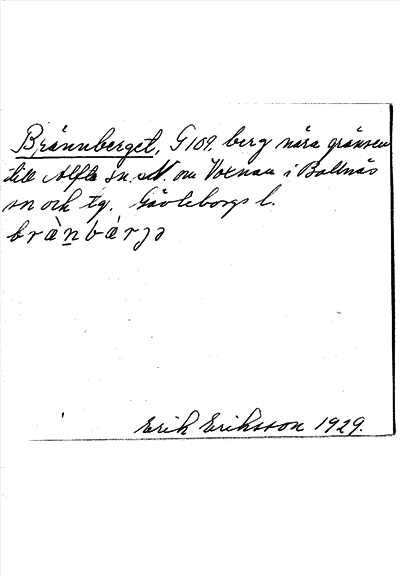 Brännberget, G109. berg nära gränsen
till Alfta sn. N. om Voxnan i Bollnäs
sn och tg. Gävleborgs l.
brànbárjə
Erik Eriksson 1929.